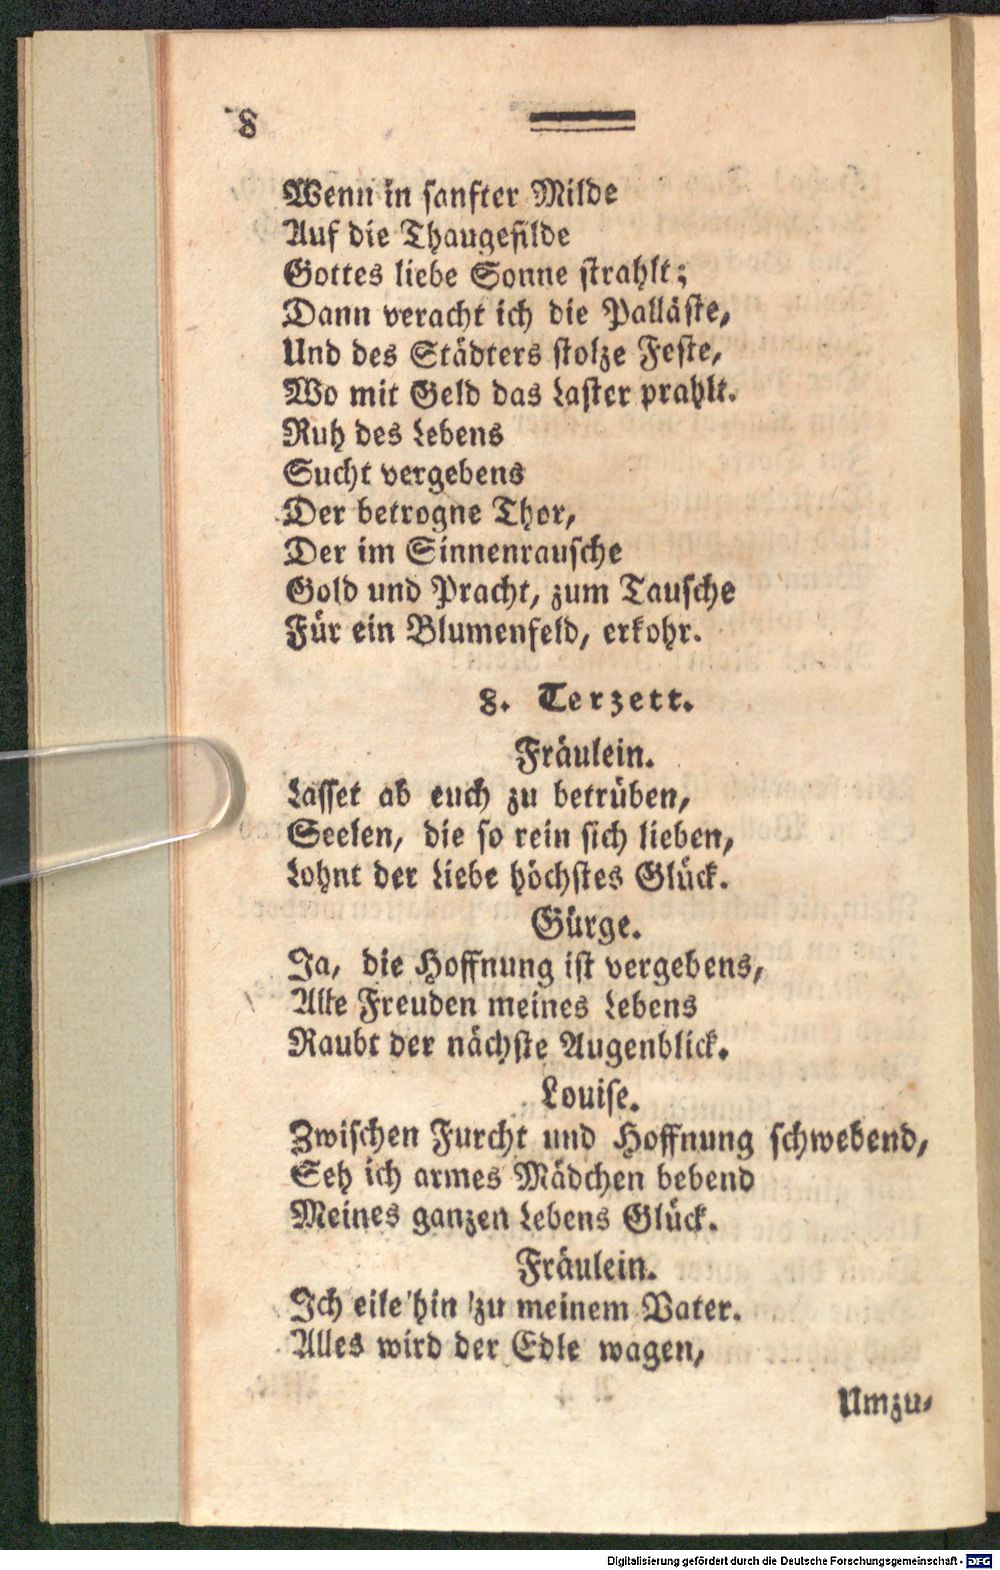 8
Wenn in sanfter Milde
Auf die Thaugefilde
Gottes liebe Sonne strahlt;
Dann veracht ich die Palläste,
Und des Städters stolze Feste,
Wo mit Geld das Laster prahlt.
Ruh des Lebens
Sucht vergebens
Der betrogne Thor,
Der im Sinnenrausche
Gold und Pracht, zum Tausche
Für ein Blumenfeld, erkohr.
8. Terzett.
Fräulein.
Lasset ab euch zu betrüben,
Seelen, die so rein sich lieben,
Lohnt der Liebe höchstes Glück.
Gürge.
Ja, die Hoffnung ist vergebens,
Alle Freuden meines Lebens
Raubt der nächste Augenblick.
Louise.
Zwischen Furcht und Hoffnung schwebend,
Seh ich armes Mädchen bebend
Meines ganzen Lebens Glück.
Fräulein.
Ich eile hin zu meinem Vater.
Alles wird der Edle wagen,
Umzu-
Digitalisierung gefördert durch die Deutsche Forschungsgemeinschaft - DFG